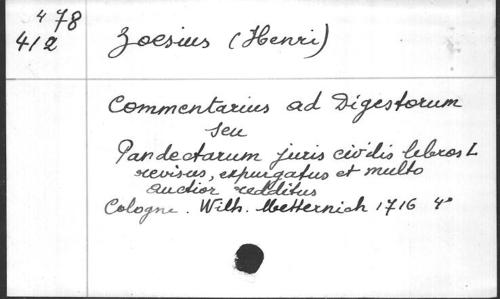 478
412
Zoesius (Henri)
Commentarius ad Digestorum
seu
Pandectarum juris civilis libros L
revisus, expurgatus et multo
auctior redditus
Cologne. Wilh. Metternich 1716 4°